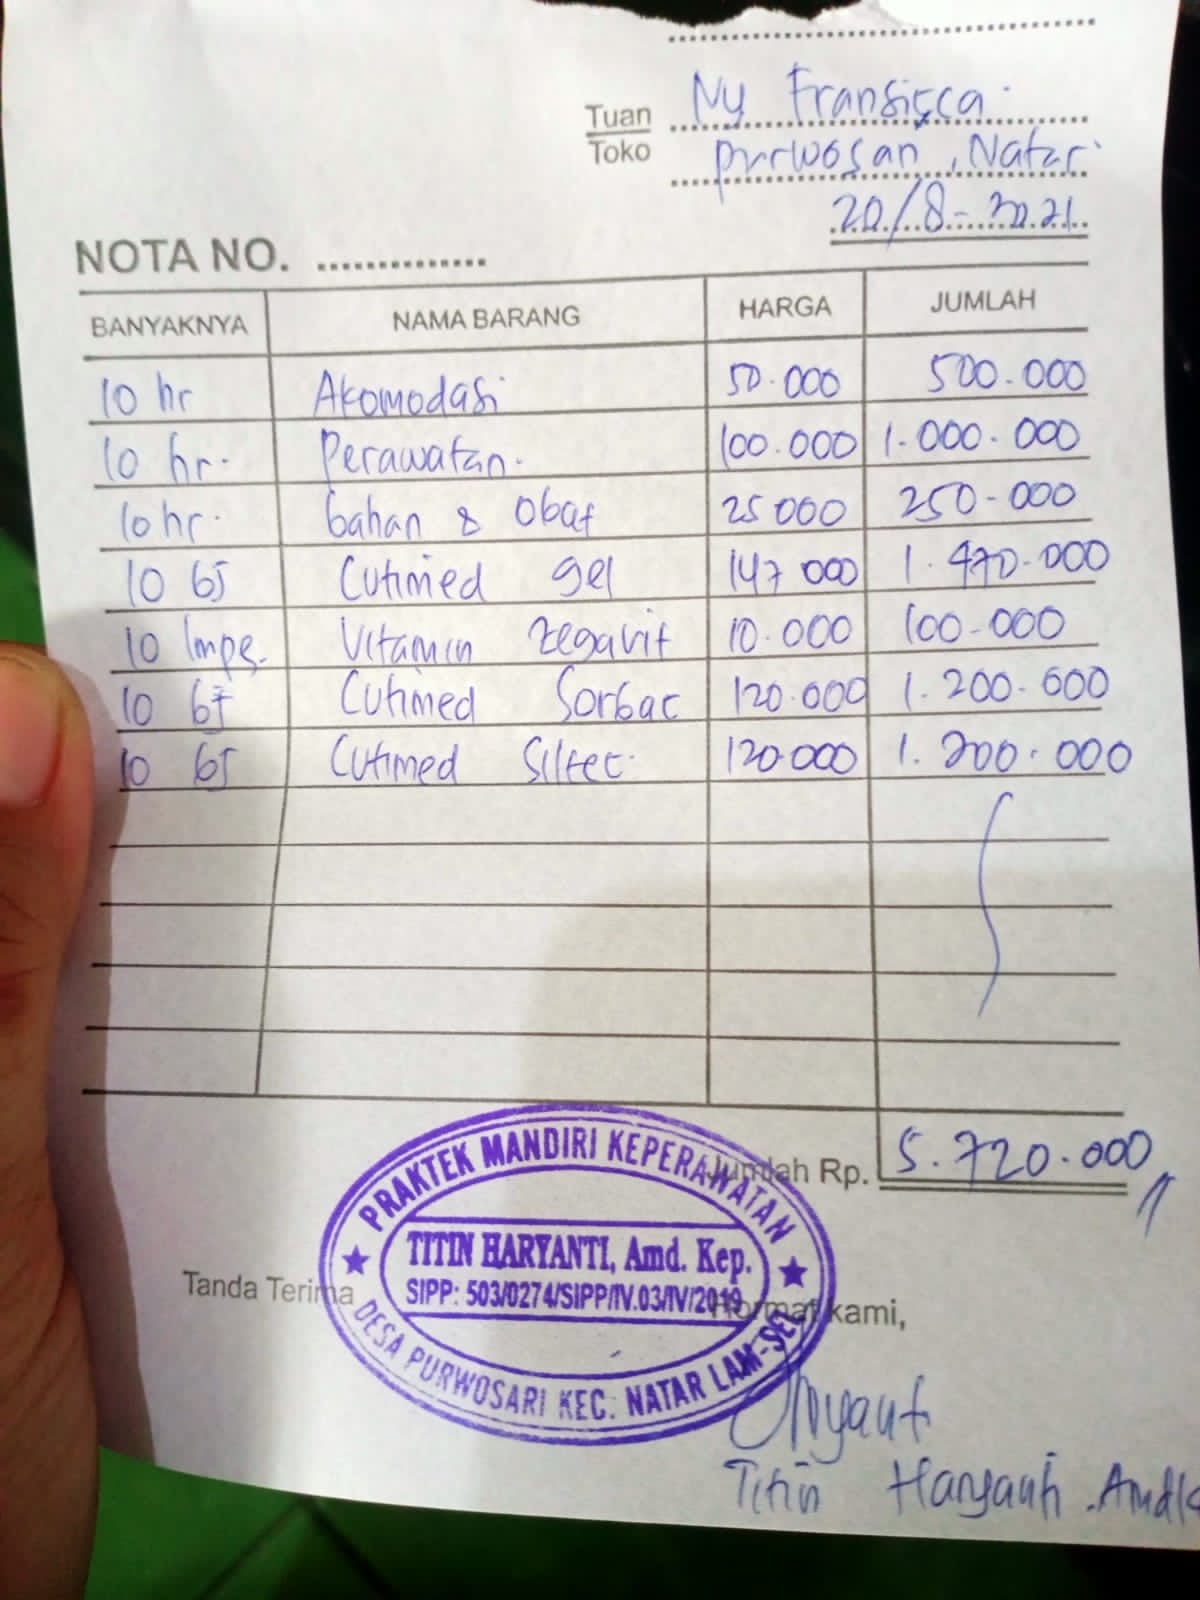 Tuan Ny Fransisca
Toko Purwosari, Natar
20/8-2021
NOTA NO. ...............
BANYAKNYA NAMA BARANG HARGA JUMLAH
10 hr Akomodasi 50.000 500.000
10 hr. Perawatan. 100.000 1.000.000
10 hr. bahan & Obat 25 000 250-000
10 bj Cutimed gel 147 000 1.470.000
10 lmpe. Vitamin Zegavit 10.000 100-000
10 bj Cutimed Sorbac 120.000 1.200.000
10 bj Cutimed Siltec. 120.000 1.200.000
Jumlah Rp. 5.720.000
PRAKTEK MANDIRI KEPERAWATAN
TITIN HARYANTI, Amd. Kep.
SIPP: 503/0274/SIPP/IV.03/IV/2019
DESA PURWOSARI KEC. NATAR LAM-SEL
Tanda Terima Hormat kami,
Titin Haryanti .Amdk